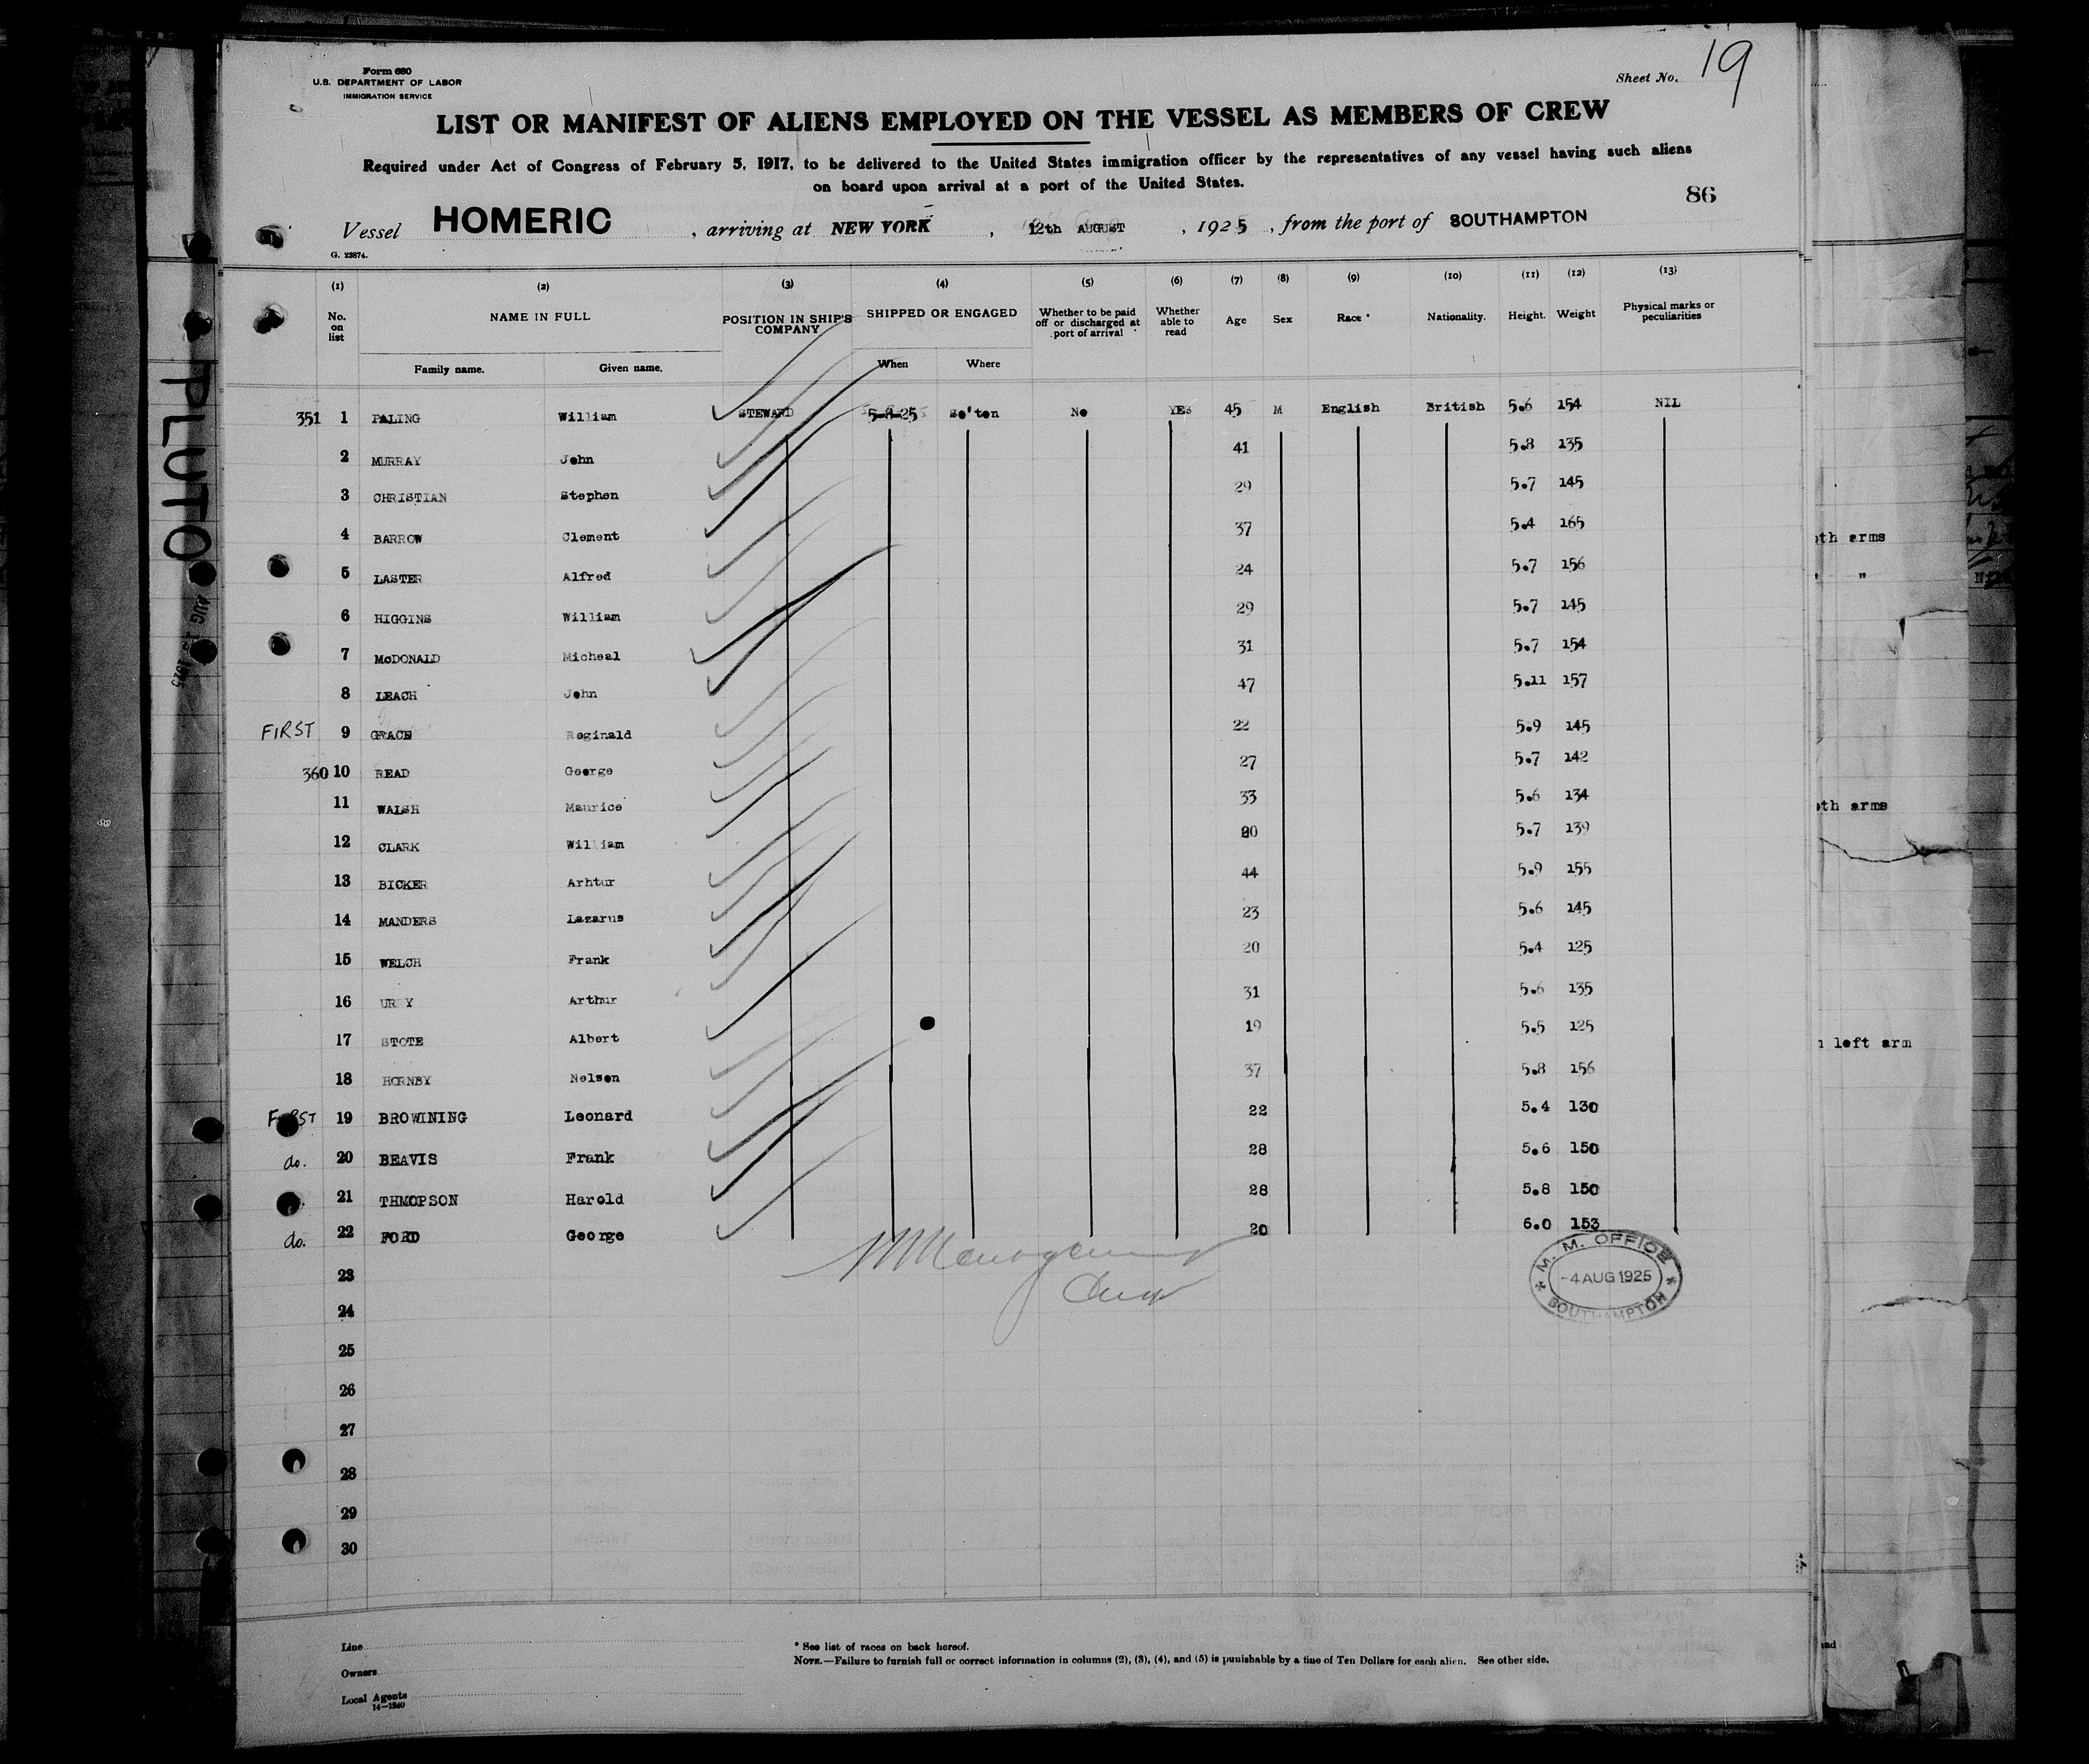 Form 680
U.S. DEPARTMENT OF LABOR
IMMIGRATION SERVICE
Sheet No. 19
LIST OR MANIFEST OF ALIENS EMPLOYED ON THE VESSEL AS MEMBERS OF CREW
Required under Act of Congress of February 5, 1917, to be delivered to the United States immigration officer by the representatives of any vessel having such aliens
on board upon arrival at a port of the United States.
86
Vessel HOMERIC, arriving at NEW YORK, 12th AUGUST, 1925, from the port of SOUTHAMPTON
G. 23874.
(1) (2) (3) (4) (5) (6) (7) (8) (9) (10) (11) (12) (13)
No. on list NAME IN FULL POSITION IN SHIP'S COMPANY SHIPPED OR ENGAGED Whether to be paid off or discharged at port of arrival Whether able to read Age Sex Race * Nationality. Height. Weight Physical marks or peculiarities
Family name. Given name. When Where
351 1 PALING William STEWARD 5-8-25 So'ton No YES 45 M English British 5.6 154 NIL
2 MURRAY John 41 5.8 135
3 CHRISTIAN Stephen 29 5.7 145
4 BARROW Clement 37 5.4 165
5 LASTER Alfred 24 5.7 156
6 HIGGINS William 29 5.7 145
7 McDONALD Micheal 31 5.7 154
8 LEACH John 47 5.11 157
FIRST 9 GRACE Reginald 22 5.9 145
360 10 READ George 27 5.7 142
11 WALSH Maurice 33 5.6 134
12 CLARK William 5.7 139
13 BICKER Arhtur 44 5.9 155
14 MANDERS Lazarus 23 5.6 145
15 WELCH Frank 20 5.4 125
16 Arthur 31 5.6 135
17 STOTE Albert 19 5.5 125
18 HORNBY Nelson 37 5.8 156
FIRST 19 BROWINING Leonard 22 5.4 130
do. 20 BEAVIS Frank 28 5.6 150
21 THMOPSON Harold 28 5.8 150
do. 22 FORD George 20 6.0 153
23
24
25
26
27
28
29
30
M. M. OFFICE
-4 AUG 1925
SOUTHAMPTON
Line
Owners
Local Agents
14-1240
* See list of races on back hereof.
NOTE.—Failure to furnish full or correct information in columns (2), (3), (4), and (5) is punishable by a fine of Ten Dollars for each alien. See other side.
PLUTO
AUG 1925
arms
"
arms
left arm